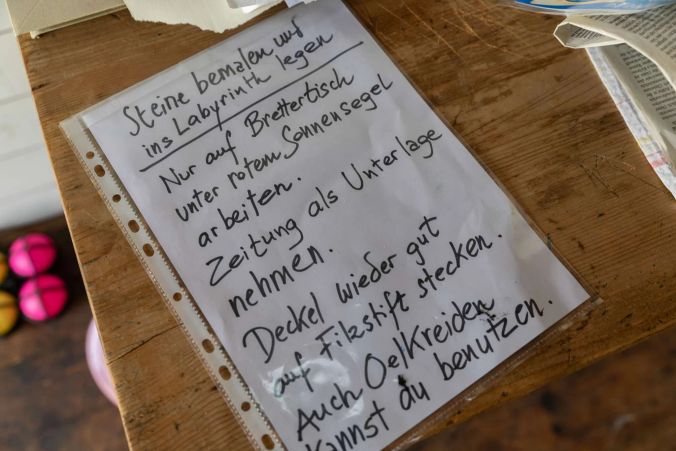 Steine bemalen und
ins Labyrinth legen
Nur auf Brettertisch
unter rotem Sonnensegel
arbeiten.
Zeitung als Unterlage
nehmen.
Deckel wieder gut
auf Filzstift stecken.
Auch Oelkreiden
kannst du benutzen.